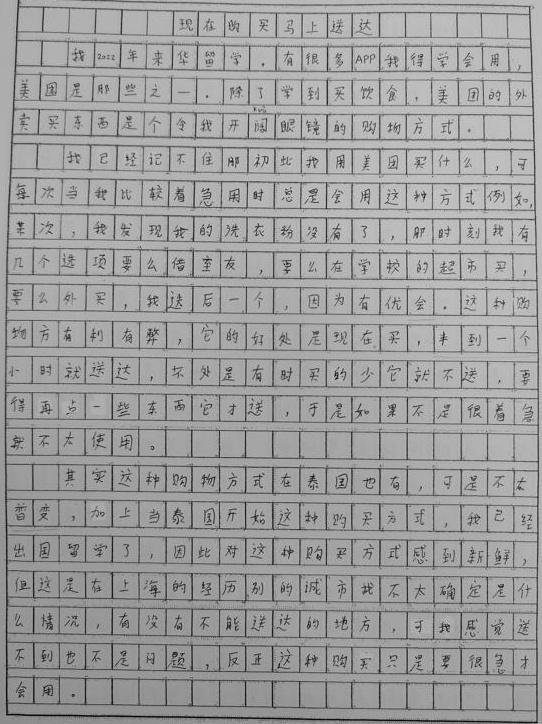 现在的买马上送达
我2022年来华留学。有很多APP我得学会用,
美国是那些之一。除了学到买饮食,美团的外
kuò
卖买东西是个令我开阔眼镜的购物方式。
我已经记不住那初此我用美团买什么,可
每次当我比较着急用时总是会用这种方式例如,
某次,我发现我的洗衣粉没有了,那时刻我有
几个选项要么借室友,要么在学校的超市买,
要么外买,我送后一个,因为有优会。这种购
物方有利有弊,它的好处是现在买,半到一个
小时就送达,坏处是有时买的少它就不送,要
得再点一些东西它才送,于是如果不是很着急
就不太使用。
其实这种购物方式在泰国也有,可是不太
普变,加上当泰国开始这种购买方式,我已经
出国留学了,因此对这种购买方式感到新鲜,
但这是在上海的经历别的城市我不太确定是什
么情况,有没有不能送达的地方,可我感觉送
不到也不是问题,反正这种购买只是要很急才
会用。